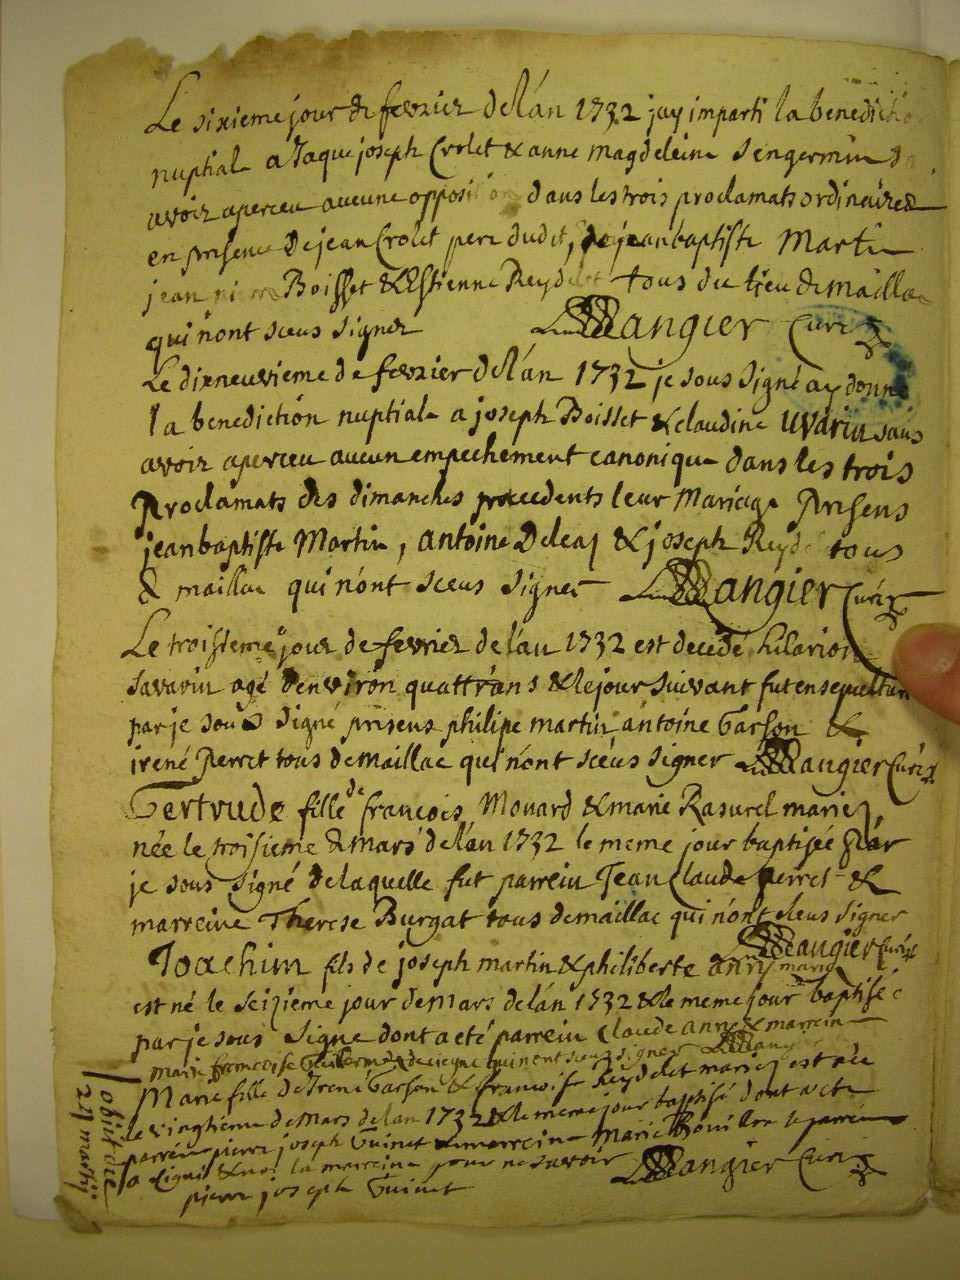 Le sixieme jour de fevrier de l'án 1732 jay imparti la benedictio
nuptiale a Jaque joseph Crolet & anne magdeleine Sengermin
avoir aperceu aucune opposition dans les trois proclamats ordinaires
en presence de jean Crolet pere dudit, de jean baptiste Martin
jean pierre Boisset & Estienne Reydelet tous du lieu de maillac
qui n'ont sceus signer Maugier Curé
Le dixneuvieme de fevrier de l'án 1732 je sous signé ay donné
la benediction nuptiale a joseph Boisset & claudine uvarin sans
avoir aperceu aucun empechement canonique dans les trois
Proclamats des dimanches precedents leur Mariage Presens
jean baptiste Martin, antoine Deleaz & joseph Reyd tous
de maillac qui n'ont sceus signer Maugier Curé
Le troisieme jour de fevrier de l'an 1732 est decedé hilarion
savarin agé d'environ quattr'ans & le jour suivant fut ensepulturé
par je sous signé presens philipe martin antoine Garson &
irené Perret tous de maillac qui n'ont sceus signer Maugier Curé
Gertrude fille de françois Monard & marie Rasurel mariez,
née le troisieme de mars de l'án 1732 le meme jour baptisée par
je sous signé de laquelle fut parrein Jean Claude perret &
marreine Therese Burgat tous de maillac qui n'ont sceus signer
Maugier Curé
Joachim fils de joseph martin & philiberte anry mariez
est né le seizieme jour de mars de l'án 1732 & le meme jour baptisé
par je sous signé dont a eté parrein Claude anry & marreine
marie francoise qui n'ont sceus signer Maugier
Marie fille de Irené Garson & francoise Reydelet mariez est née
le vingtieme de Mars de l'an 1732 & le meme jour baptisé dont a eté
parrein pierre joseph Guinet & marreine Marie le parrein
a signé & non la marreine pour ne savoir Maugier Curé
pierre joseph Guinet
obiit die
24 martij